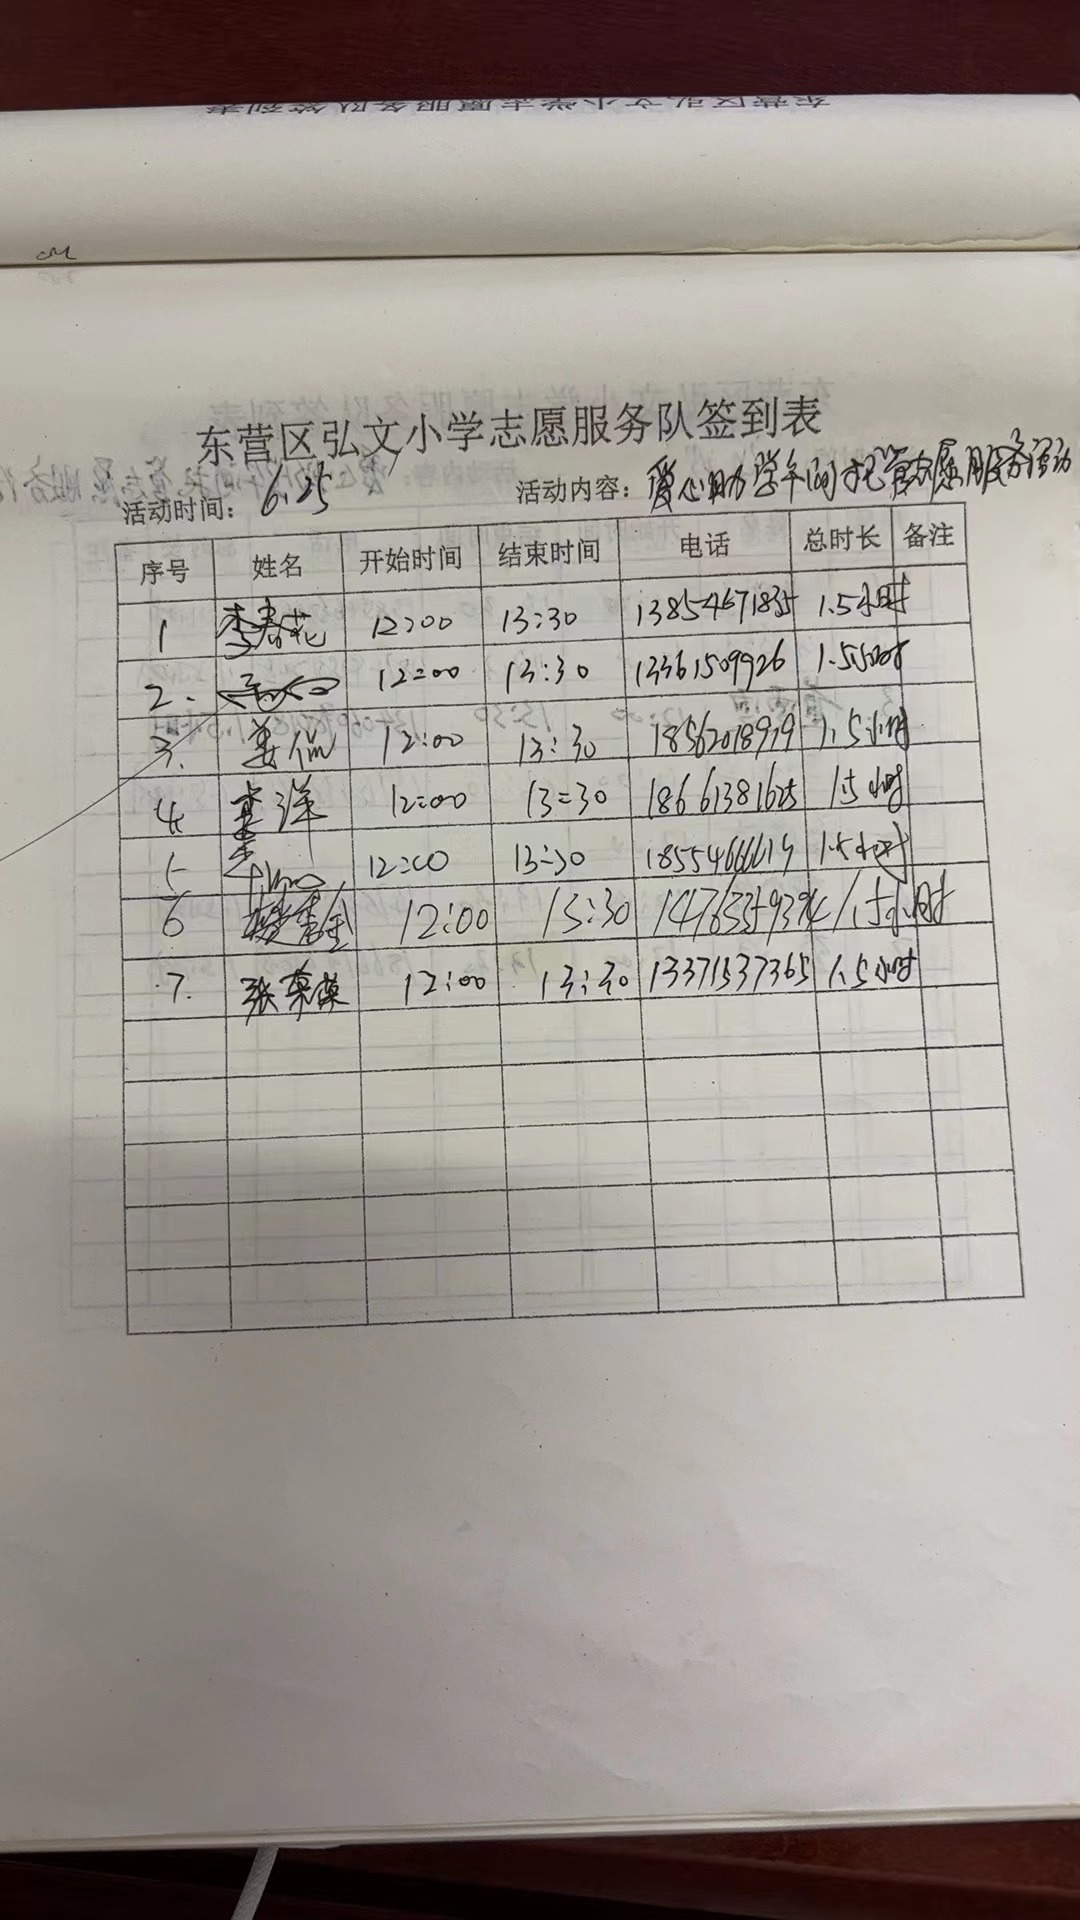 东营区弘文小学志愿服务队签到表
活动时间：6.25 活动内容：爱心助学午间托管志愿服务活动
序号 姓名 开始时间 结束时间 电话 总时长 备注
1 李春花 12:00 13:30 13854671835 1.5小时
2. 12:00 13:30 13361509926 1.5小时
3. 姜侃 12:00 13:30 18562018919 1.5小时
4. 洋 12:00 13:30 18661381625 1.5小时
5 12:00 13:30 18554666619 1.5小时
6 12:00 13:30 1.5小时
7. 张荣 12:00 13:30 13371537365 1.5小时